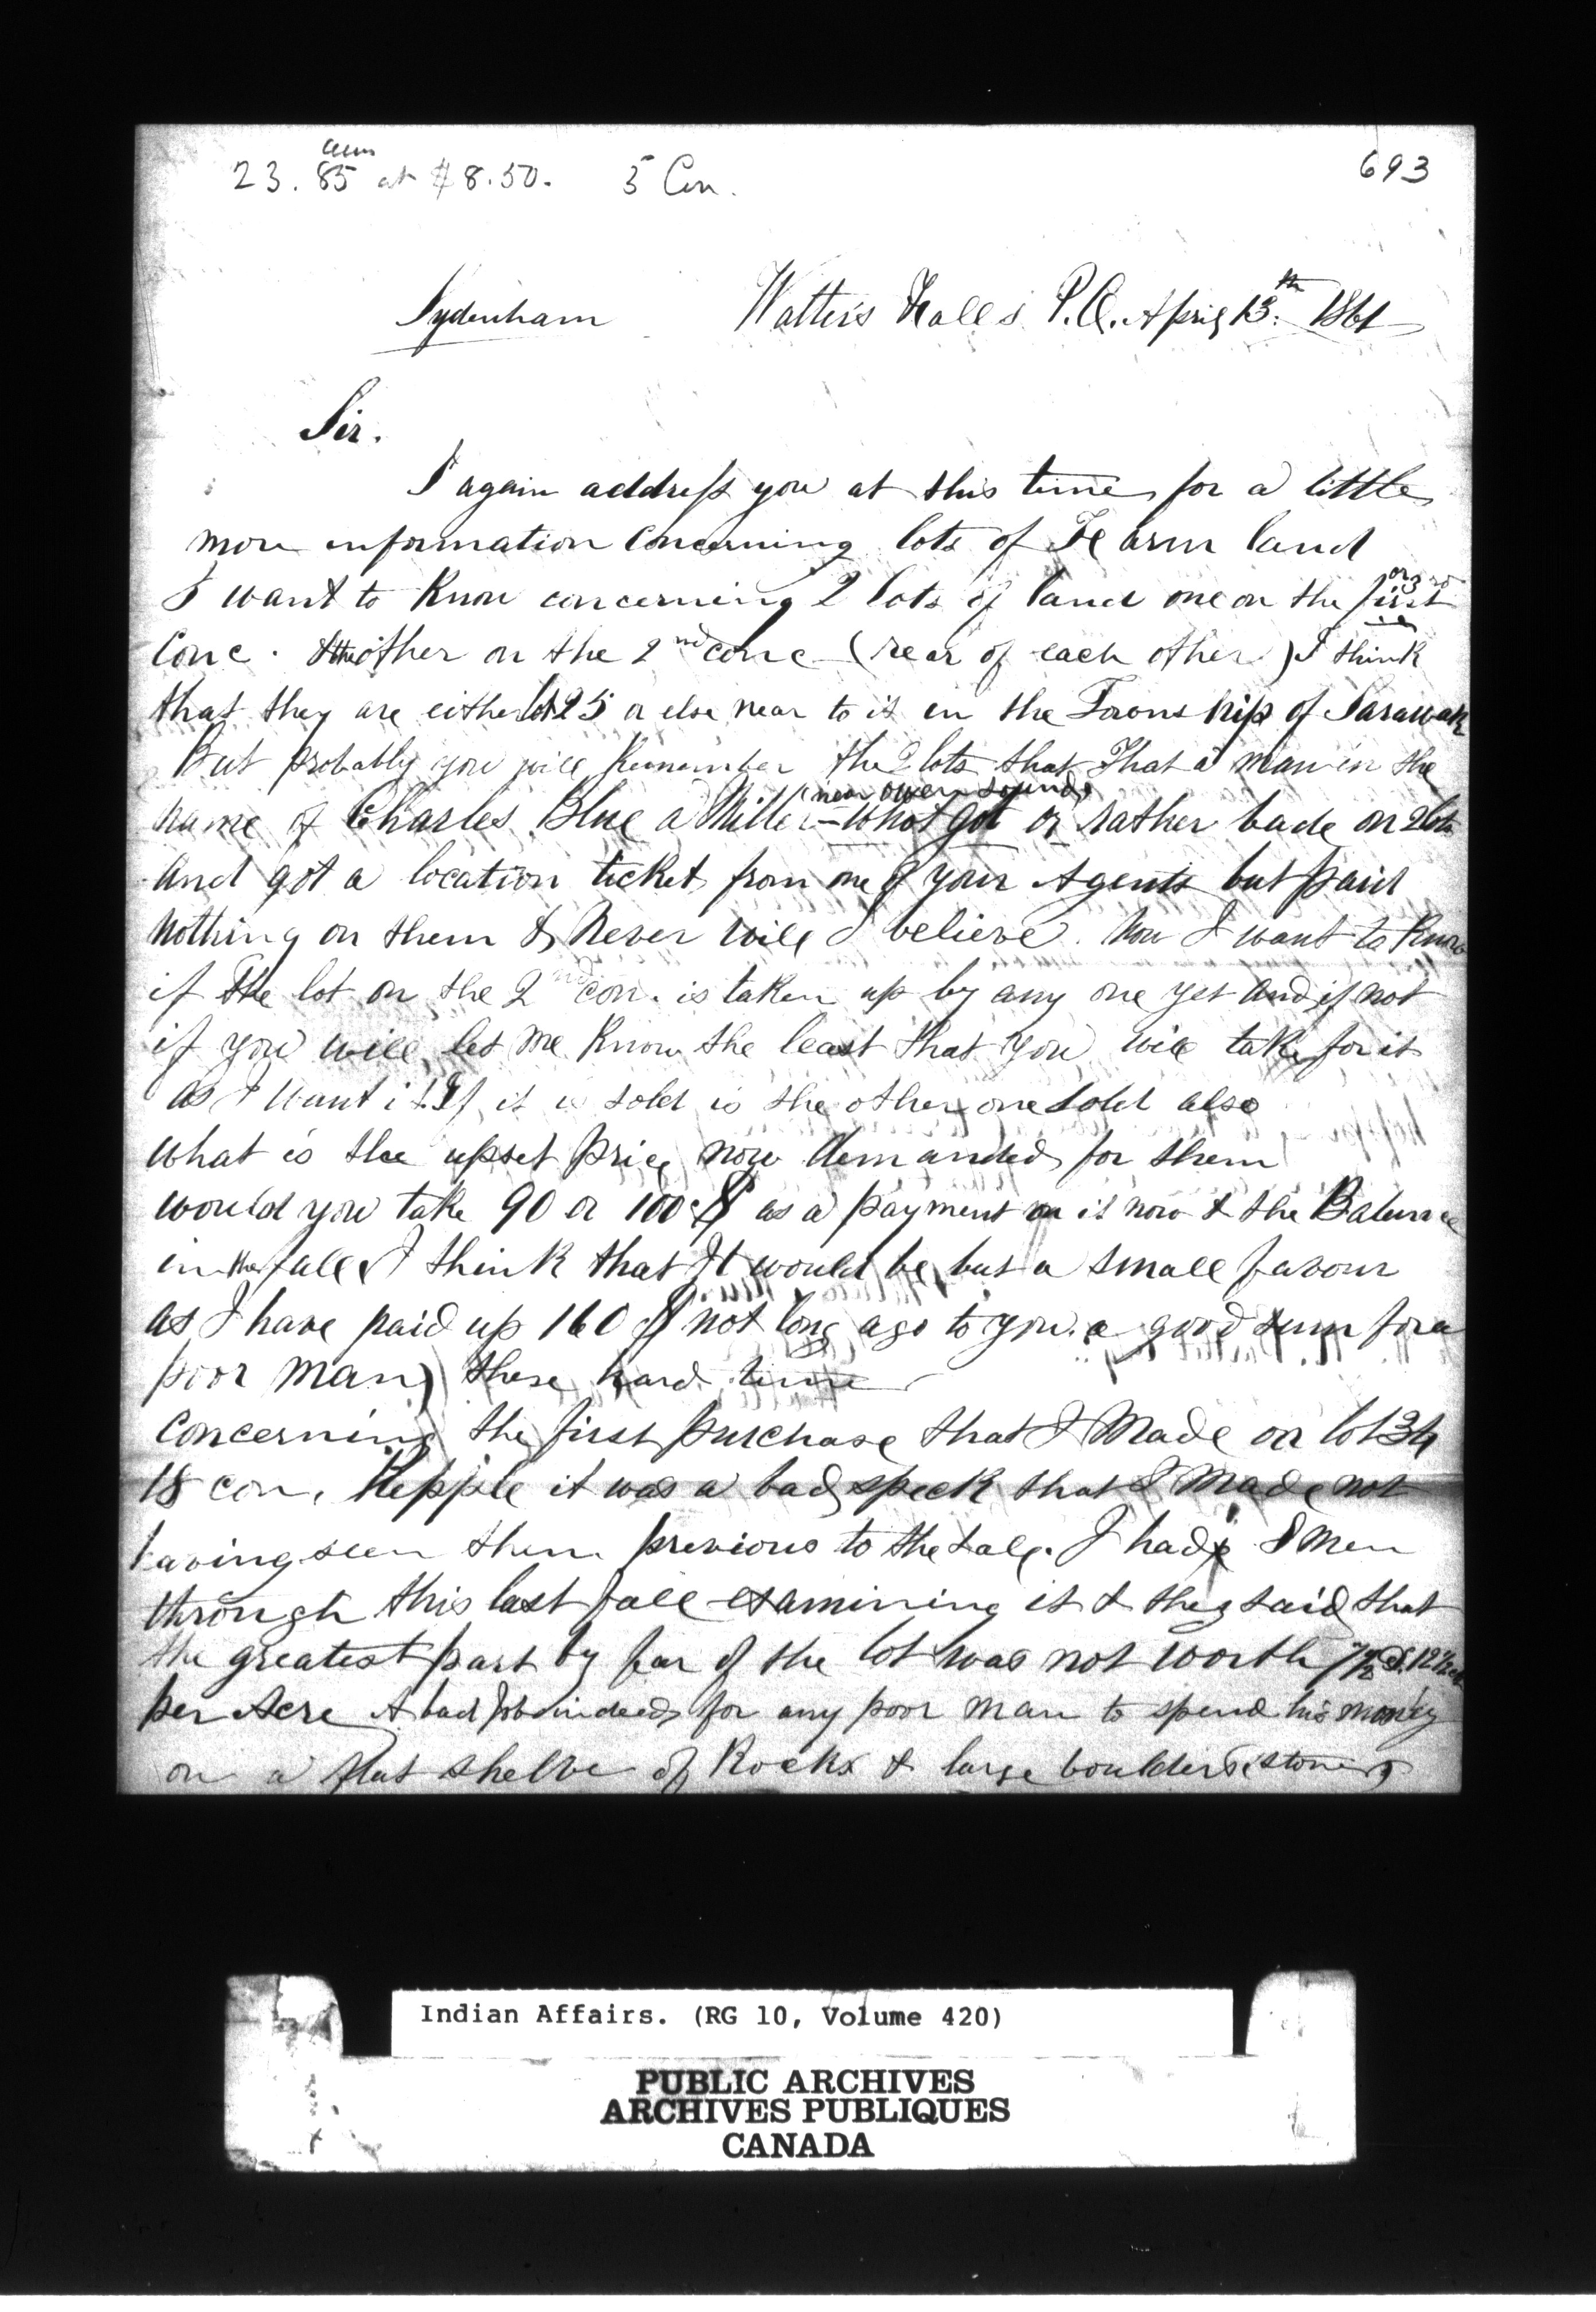 693
acres
23. 85 at $8.50. 5 Con.
Sydenham Walter's Falls P.O. April 13th 1861
Sir.
I again address you at this time for a little
more information concerning lots of Farm land
I want to know concerning 2 lots of land one on the first or 3rd
Conc. the other on the 2nd conc (rear of each other) I think
that they are either lot 25 or else near to it in the Township of Sarawak
But probably you will Remember the 2 lots that That a man in the
name of Charles Blue a Miller (near owen sound) - What got or rather bade on 2 lots
and got a location ticket from one of your Agents but paid
nothing on them & Never will I believe. Now I want to Know
if the lot on the 2nd con. is taken up by any one yet and if not
if you will let me Know the least that you will take for it
as I want it. If it is sold is the other one sold also
what is the upset price now demanded for them
would you take 90 or 100 $ as a payment on it now & the Balance
in the fall I think that It would be but a small favour
as I have paid up 160 $ not long ago to you. a good sum for a
poor man) these hard time
Concerning the first purchase that I Made on lot 34
18 con, Kepple it was a bad speck that I Made not
having seen them previous to the sale. I had 8 Men
through this last fall examining it & they said that
the greatest part by far of the lot was not worth 7½d. 12½ cts
per Acre A bad Job indeed for any poor man to spend his money
on a flat shelve of Rocks & large boulders (stones)
Indian Affairs. (RG 10, Volume 420)
PUBLIC ARCHIVES
ARCHIVES PUBLIQUES
CANADA